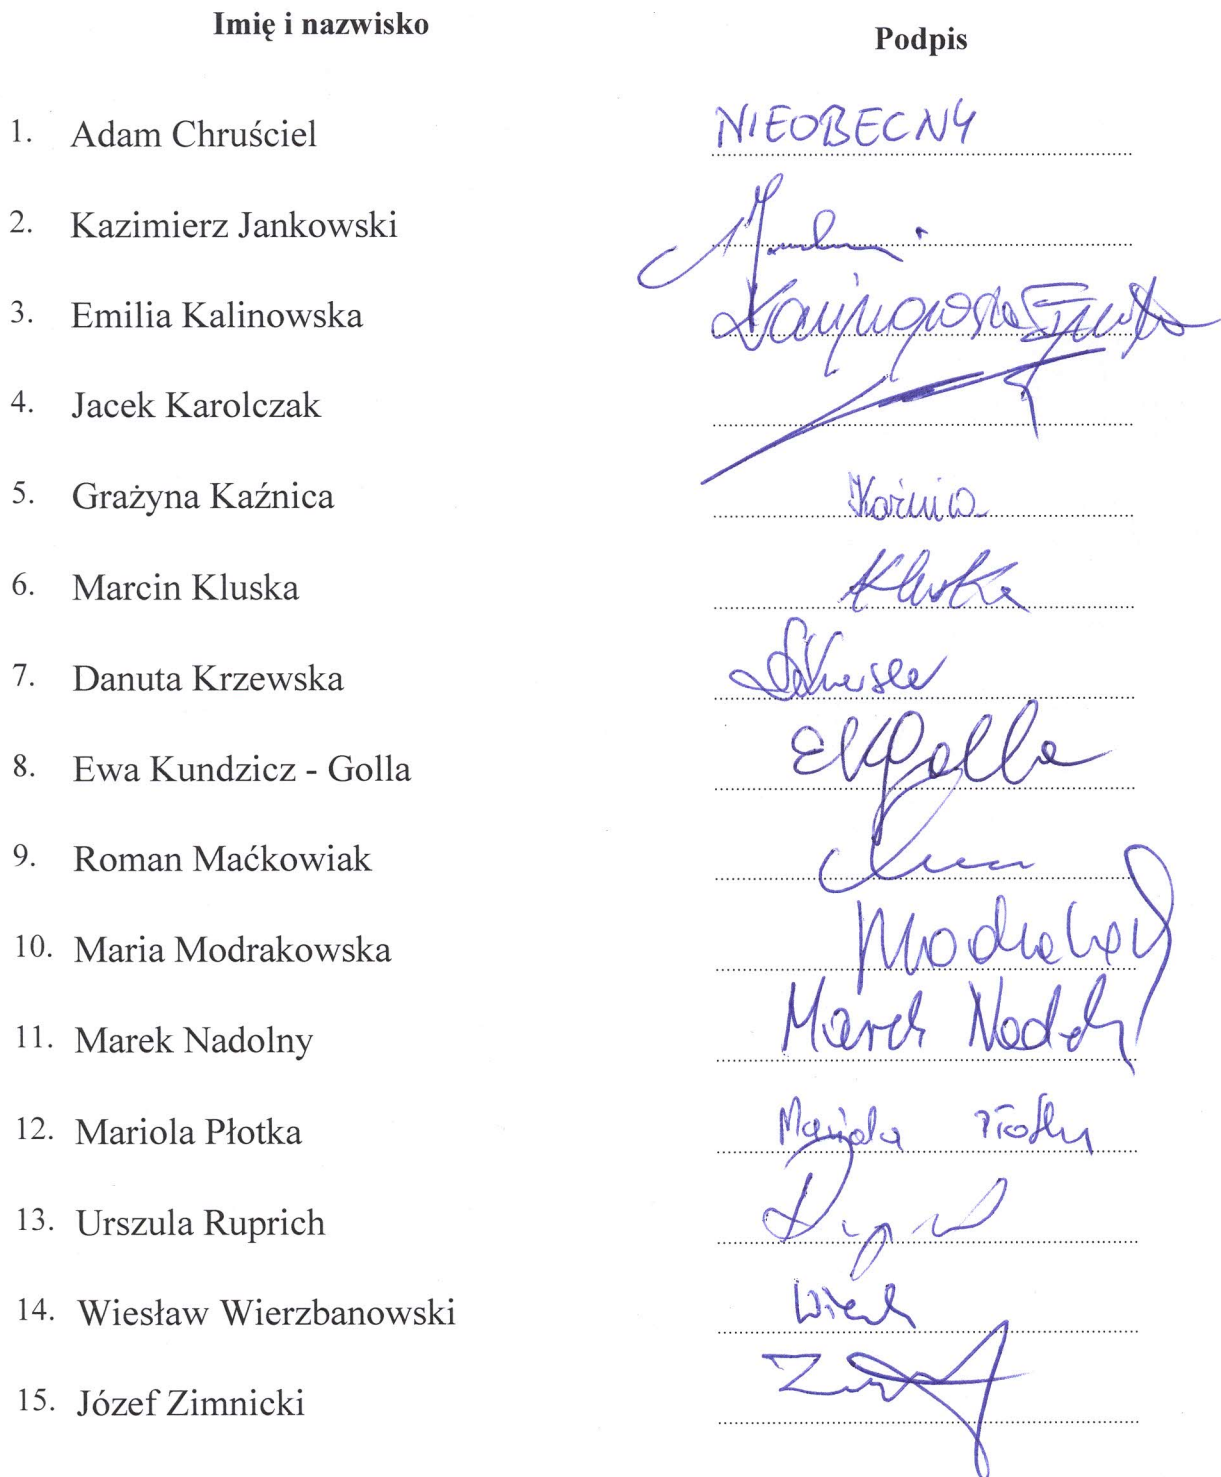 Imię i nazwisko Podpis
1. Adam Chruściel NIEOBECNY
2. Kazimierz Jankowski
3. Emilia Kalinowska
4. Jacek Karolczak
5. Grażyna Kaźnica
6. Marcin Kluska Kluska
7. Danuta Krzewska
8. Ewa Kundzicz - Golla EKGolla
9. Roman Maćkowiak
10. Maria Modrakowska
11. Marek Nadolny Marek
12. Mariola Płotka Mariola
13. Urszula Ruprich
14. Wiesław Wierzbanowski
15. Józef Zimnicki